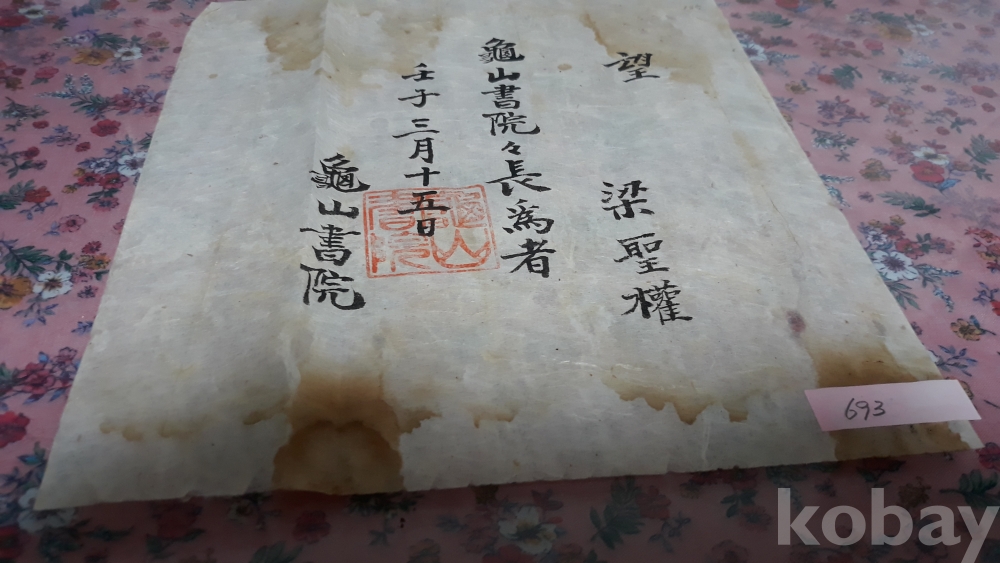 望 梁聖權
龜山書院々長爲者
壬子三月十五日
龜山書院
龜山書院
693
kobay